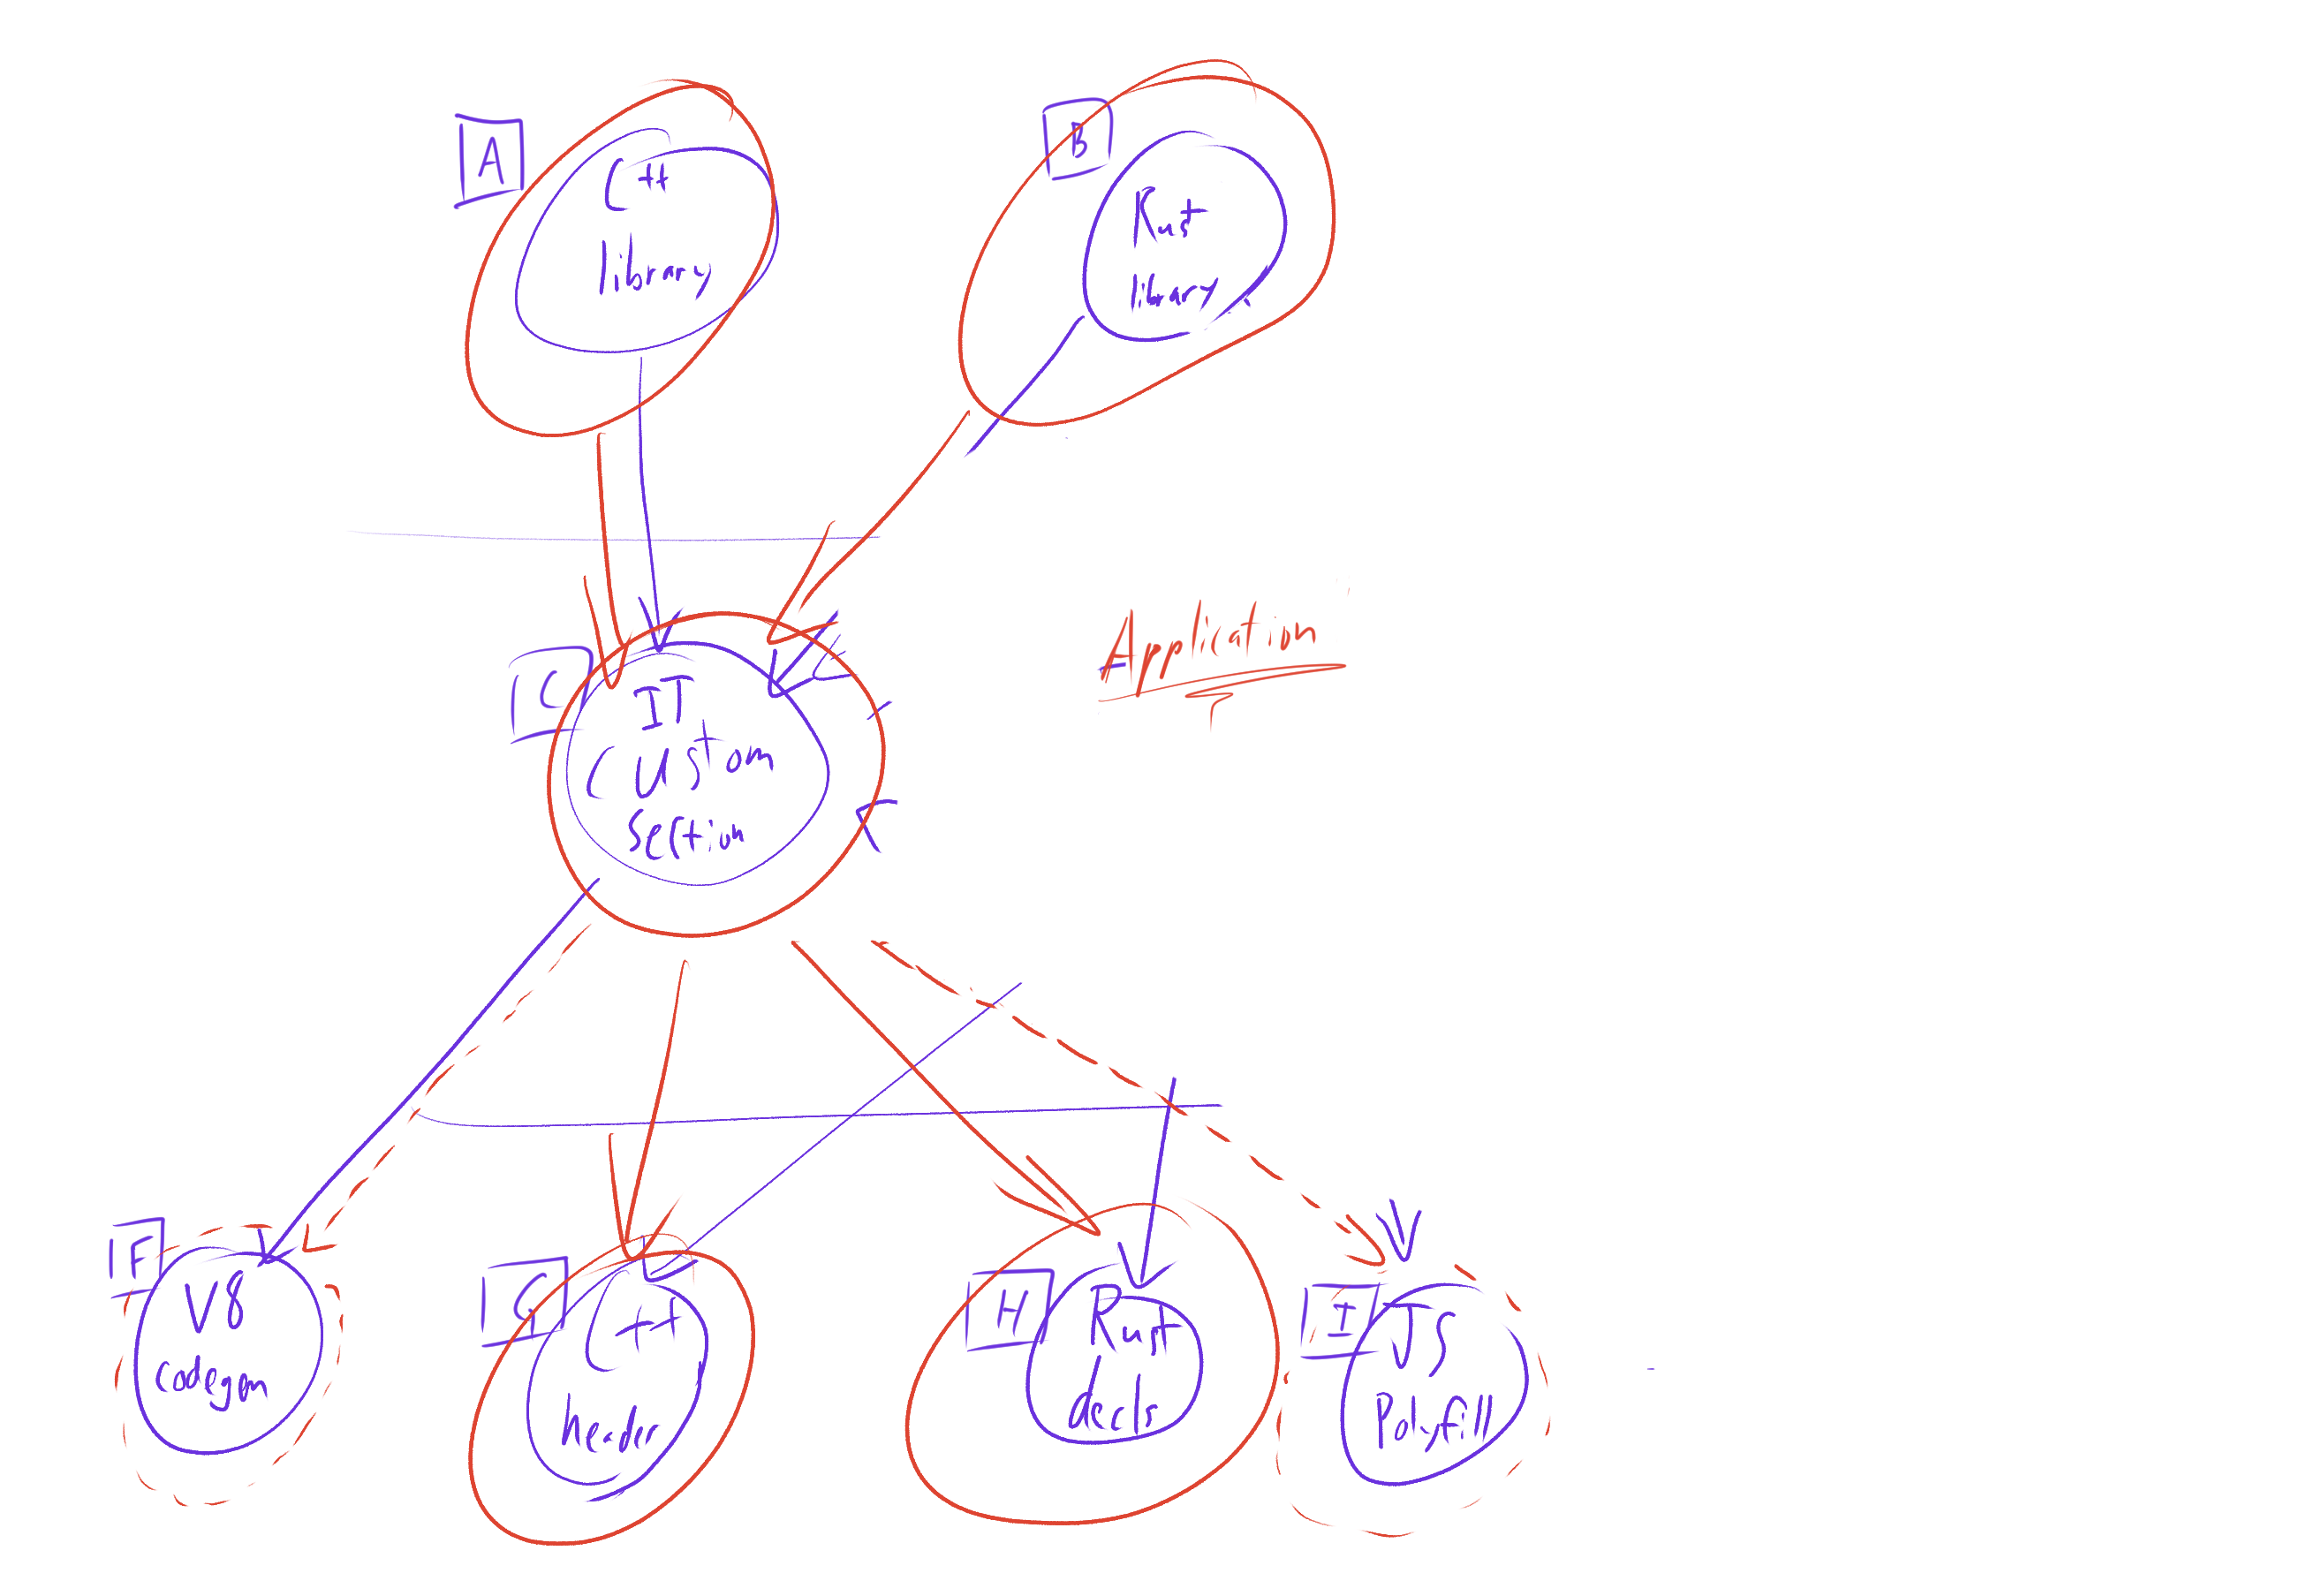 A
C++
library
B
Rust
library
Application
C
IT
Custom
Section
F
V8
codegen
G
C++
header
H
Rust
decls
I
JS
Polyfill